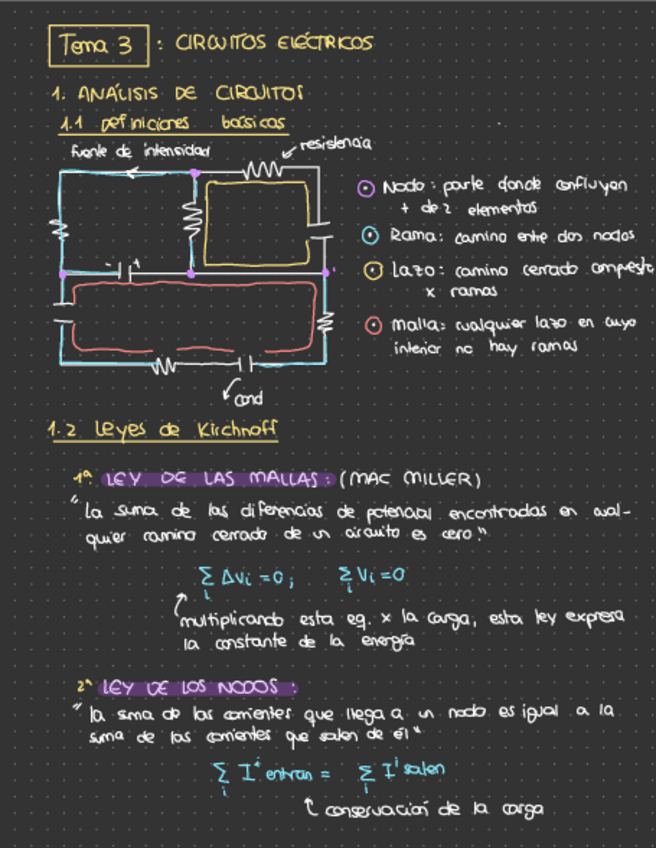 Tema 3 : CIRCUITOS ELÉCTRICOS
1. ANÁLISIS DE CIRCUITOS
1.1 Definiciones básicas
fuente de intensidad
resistencia
- +
cond
Nodo: parte donde confluyen
+ de 2 elementos
Rama: camino entre dos nodos
Lazo: camino cerrado compuesto
x ramas
Malla: cualquier lazo en cuyo
interior no hay ramas
1.2 Leyes de Kirchhoff
1ª LEY DE LAS MALLAS: (MAC MILLER)
"La suma de las diferencias de potencial encontradas en cual-
quier camino cerrado de un circuito es cero."
∑i ΔVi = 0; ∑i Vi = 0
multiplicando esta eq. x la carga, esta ley expresa
la constante de la energía
2ª LEY DE LOS NODOS:
"la suma de las corrientes que llega a un nodo es igual a la
suma de las corrientes que salen de él"
∑i Iⁱ entran = ∑i Iⁱ salen
conservación de la carga